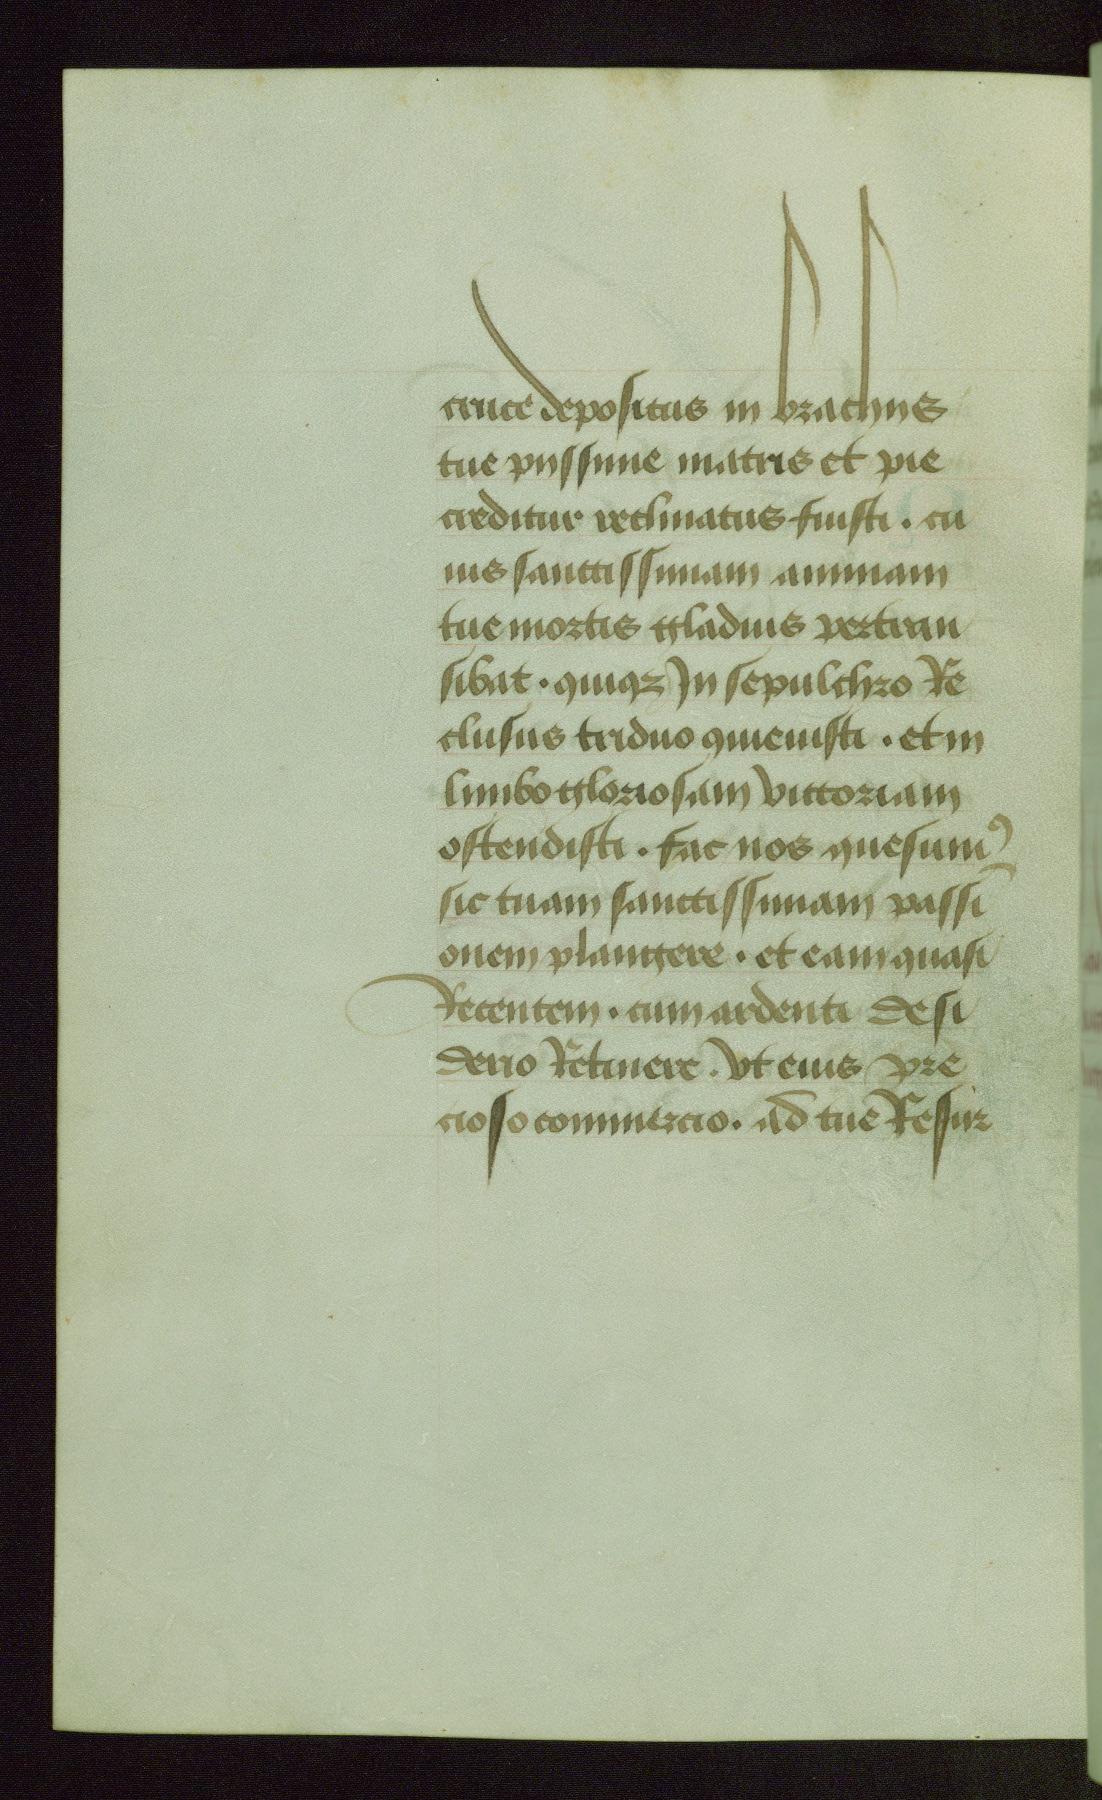 cruce depositus in brachijs
tue pijssime matris et pie
creditur reclinatus fuisti . cu
ius sanctissimam animam
tue mortis gladius pertran
sibat . quiqꝫ In sepulchro Re
clusus triduo quieuisti . et in
limbo gloriosam victoriam
ostendisti . fac nos quesumꝰ
sic tuam sanctissimam passi
onem plangere . et eam quasi
Recentem . cum ardenti desi
derio Retinere . vt eius pre
cioso commercio . ad tue Resur